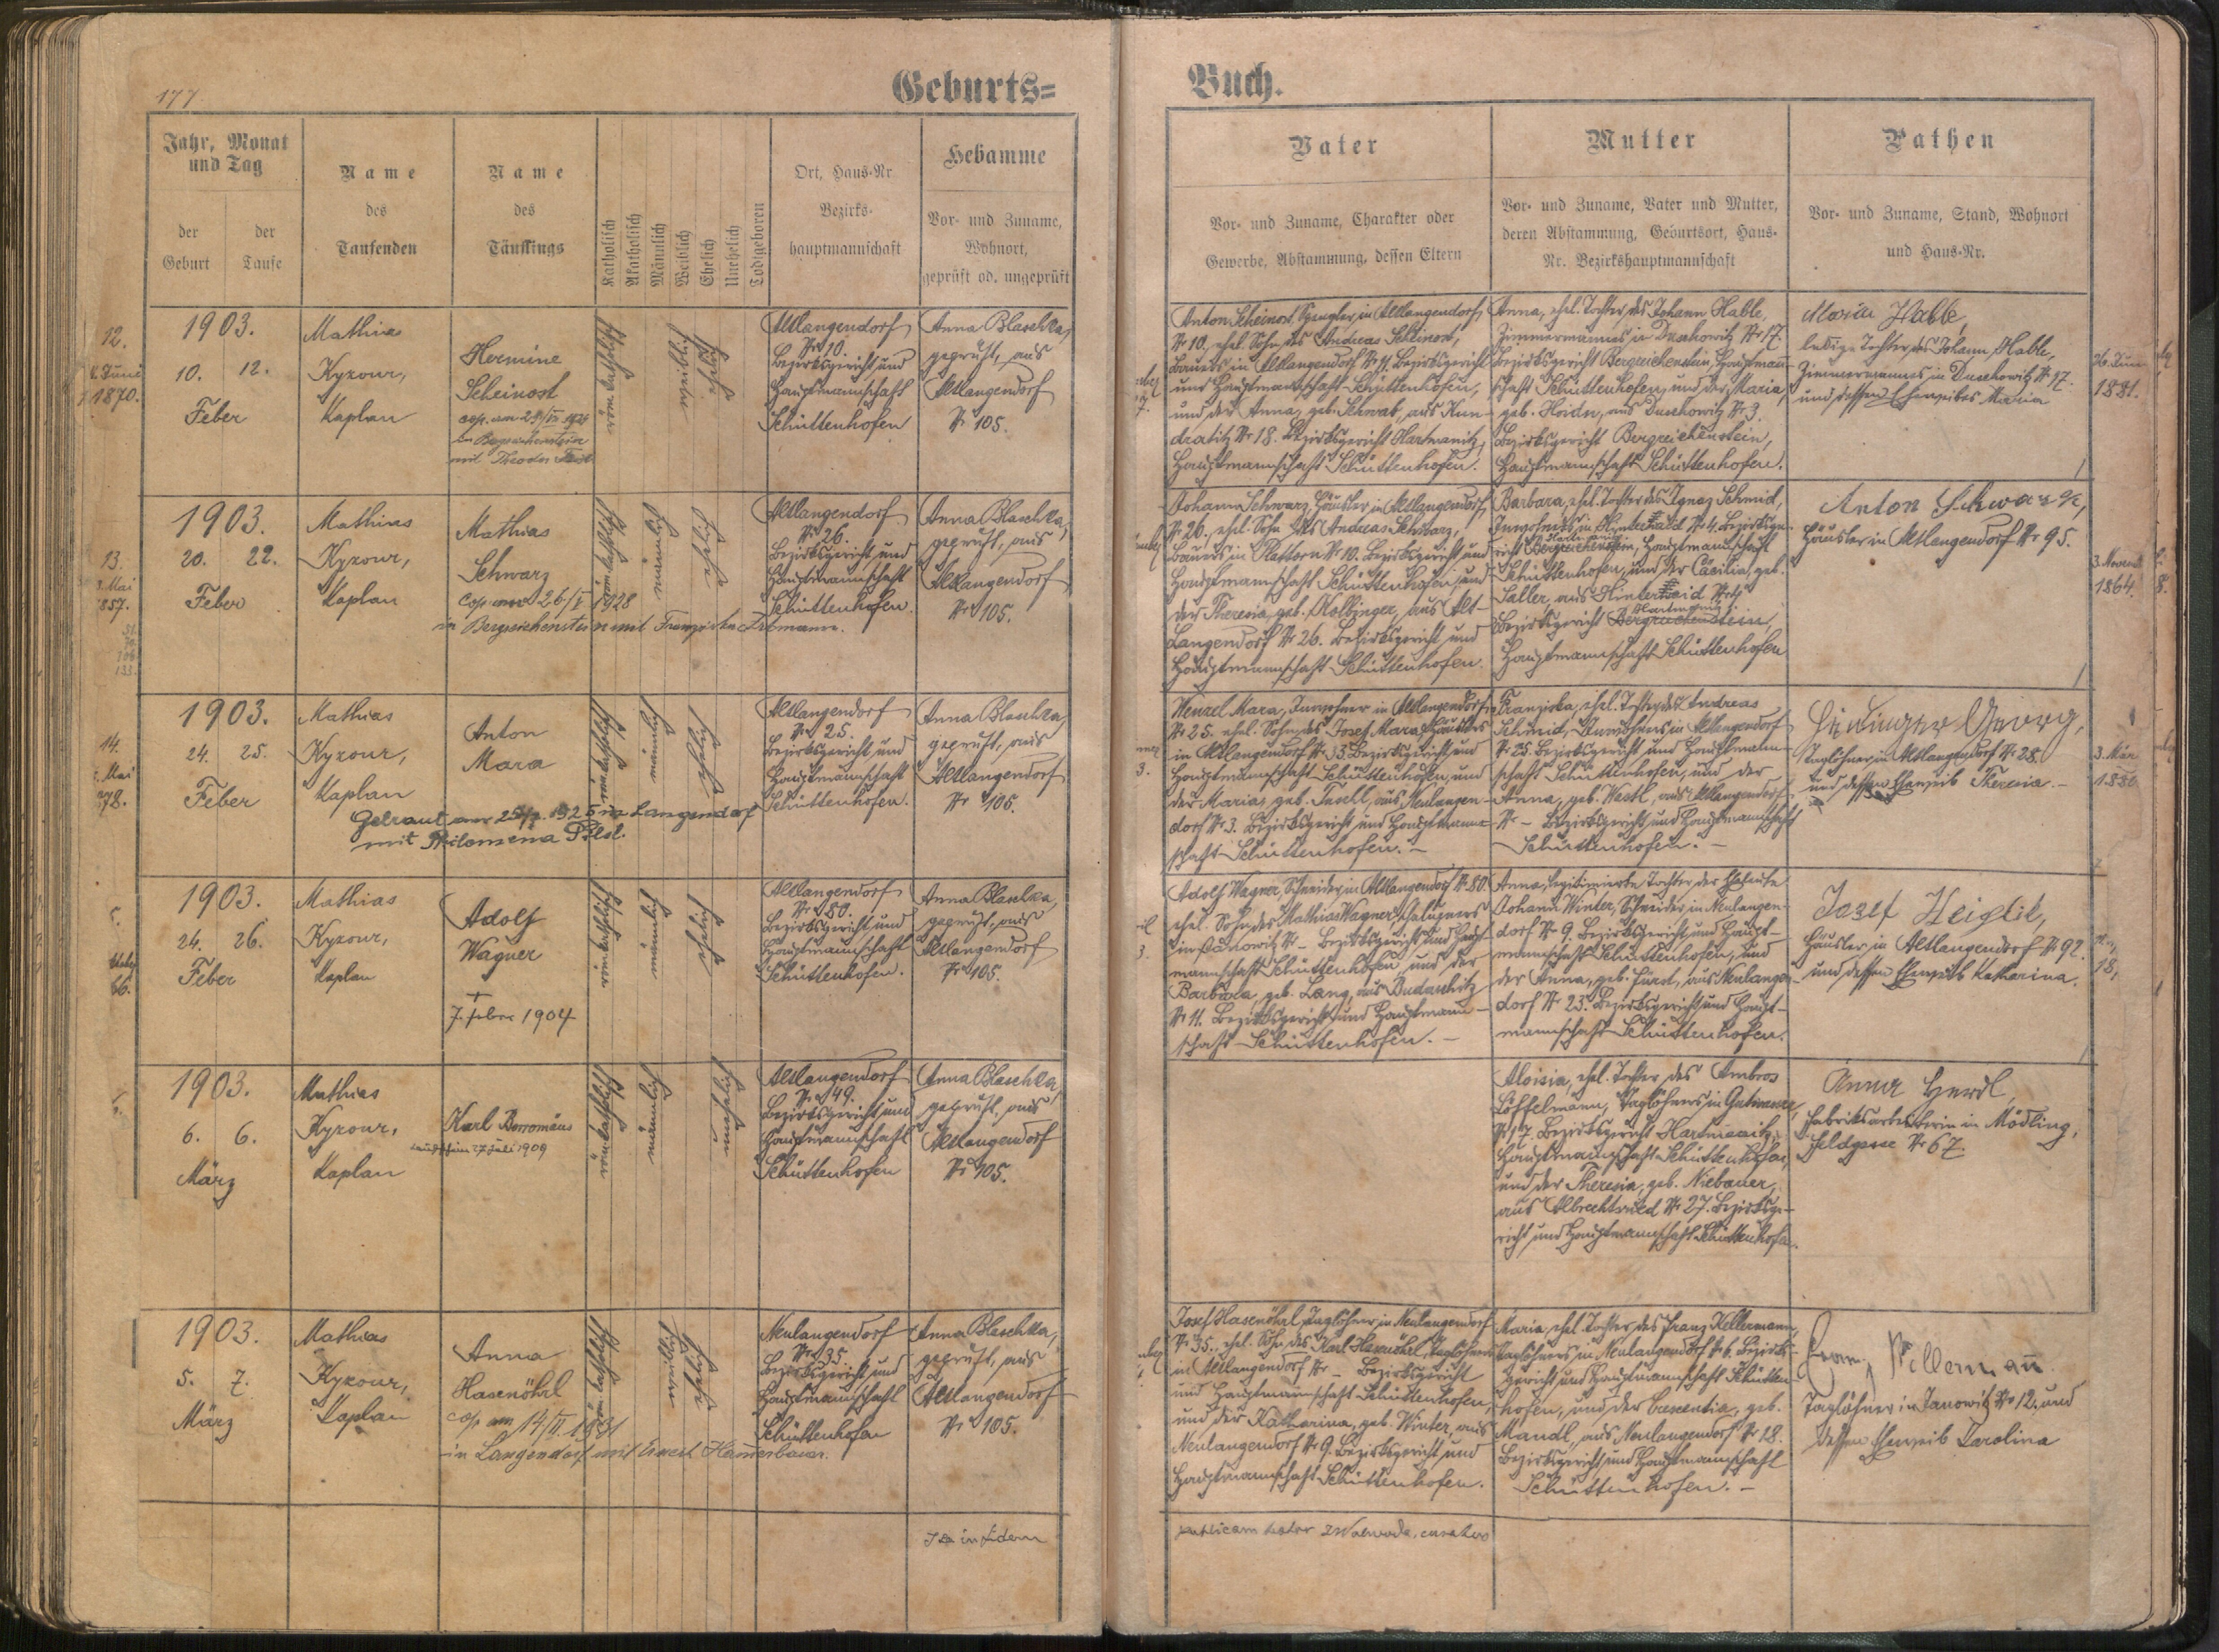 177
Geburts=
Buch.
Jahr, Monat
und Tag
der
Geburt
der
Taufe
Name
des
Taufenden
Name
des
Täuflings
Katholisch
Akatholisch
Männlich
Weiblich
Ehelich
Unehelich
Todtgeboren
Ort, Haus-Nr.
Bezirks-
hauptmannschaft
Hebamme
Vor- und Zuname,
Wohnort,
geprüft od. ungeprüft
Vater
Vor- und Zuname, Charakter oder
Gewerbe, Abstammung, dessen Eltern
Mutter
Vor- und Zuname, Vater und Mutter,
deren Abstammung, Geburtsort, Haus-
Nr. Bezirkshauptmannschaft
Pathen
Vor- und Zuname, Stand, Wohnort
und Haus-Nr.
1903.
10. 12.
Feber
Mathias
Kyzour,
Kaplan
Hermine
Scheinost
in Bergreichenstein
mit Theodor
röm. katholisch
weiblich
ehelich
Altlangendorf
Nr 10.
Bezirksgericht und
Hauptmannschaft
Schüttenhofen
Anna Blaschka,
geprüft, aus
Altlangendorf
Nr 105.
Anton Scheinost, Spengler in Altlangendorf
Nr 10, ehel. Sohn des Andreas Scheinost,
Bauers in Altlangendorf Nr 11. Bezirksgericht
und Hauptmannschaft Schüttenhofen,
und der Anna, geb. Schwab, aus Kun-
dratitz Nr 18. Bezirksgericht Hartmanitz,
Hauptmannschaft Schüttenhofen.
Anna, ehel. Tochter des Johann Hable,
Zimmermannes in Duschowitz Nr 17.
Bezirksgericht Bergreichenstein, Hauptmann-
schaft Schüttenhofen, und der Maria,
geb. Hoidn, aus Duschowitz Nr 3.
Bezirksgericht Bergreichenstein,
Hauptmannschaft Schüttenhofen.
Maria Hable,
ledige Tochter des Johann Hable,
Zimmermannes in Duschowitz Nr 17.
und dessen Eheweibes Maria
1903.
20. 22.
Feber
Mathias
Kyzour,
Kaplan
Mathias
Schwarz
cop. am 26/I 1928
in Bergreichenstein mit Franziska Erdmann.
röm. katholisch
männlich
ehelich
Altlangendorf
Nr 26.
Bezirksgericht und
Hauptmannschaft
Schüttenhofen.
Anna Blaschka,
geprüft, aus
Altlangendorf
Nr 105.
Johann Schwarz, Häusler in Altlangendorf,
Nr 26. ehel. Sohn des Andreas Schwarz,
Bauers in Plattorn Nr 10. Bezirksgericht und
Hauptmannschaft Schüttenhofen, und
der Theresia, geb. Holbinger, aus Alt-
Langendorf Nr 26. Bezirksgericht und
Hauptmannschaft Schüttenhofen.
Barbara, ehel. Tochter des Ignaz Schmid,
Inwohners in Hinterhaid Nr 4. Bezirksge-
Hartmanitz
richt Bergreichenstein, Hauptmannschaft
Schüttenhofen, und der Cäcilia, geb.
Saller, aus Hinterhaid Nr 4
Hartmanitz
Bezirksgericht Bergreichenstein,
Hauptmannschaft Schüttenhofen
Anton Schwarz,
Häusler in Altlangendorf Nr 95.
1903.
24. 25.
Feber
Mathias
Kyzour,
Kaplan
Anton
Mara
in Langendorf
mit Philomena Pilsl.
röm. katholisch
männlich
ehelich
Altlangendorf
Nr 25.
Bezirksgericht und
Hauptmannschaft
Schüttenhofen.
Anna Blaschka,
geprüft, aus
Altlangendorf
Nr 105.
Wenzel Mara, Inwohner in Altlangendorf
Nr 25. ehel. Sohn des Josef Mara, Häuslers
in Altlangendorf Nr 33. Bezirksgericht und
Hauptmannschaft Schüttenhofen, und
der Maria, geb. Taschl, aus Neulangen-
dorf Nr 3. Bezirksgericht und Hauptmann-
schaft Schüttenhofen. –
Franziska, ehel. Tochter des Andreas
Schmid, Inwohners in Altlangendorf
Nr 25. Bezirksgericht und Hauptmann-
schaft Schüttenhofen, und der
Anna, geb. Wastl, aus Altlangendorf
Nr – Bezirksgericht und Hauptmannschaft
Schüttenhofen. –
Georg,
Taglöhner in Altlangendorf Nr 28.
und dessen Eheweib Theresia. –
1903.
24. 26.
Feber
Mathias
Kyzour,
Kaplan
Adolf
Wagner
†
7. Febr 1904
röm. katholisch
männlich
ehelich
Altlangendorf
Nr 80.
Bezirksgericht und
Hauptmannschaft
Schüttenhofen.
Anna Blaschka,
geprüft, aus
Altlangendorf
Nr 105.
Adolf Wagner, Schneider in Altlangendorf Nr 80.
ehel. Sohn des Mathias Wagner, Chalupners
in Janowitz Nr – Bezirksgericht und Haupt-
mannschaft Schüttenhofen, und der
Barbara, geb. Lang, aus Budaschitz
Nr 11. Bezirksgericht und Hauptmann-
schaft Schüttenhofen. –
Anna, legitimierte Tochter der Eheleute
Johann Winter, Schneider in Neulangen-
dorf Nr 9. Bezirksgericht und Haupt-
mannschaft Schüttenhofen, und
der Anna, geb. Fürst, aus Neulangen-
dorf Nr 23. Bezirksgericht und Haupt-
mannschaft Schüttenhofen.
Josef Heiglik,
Häusler in Altlangendorf Nr 92.
und dessen Eheweib Katharina.
1903.
6. 6.
März
Mathias
Kyzour,
Kaplan
Karl Borromäus
27 Juli 1909
röm. katholisch
männlich
unehelich
Altlangendorf
Nr 49.
Bezirksgericht und
Hauptmannschaft
Schüttenhofen
Anna Blaschka,
geprüft, aus
Altlangendorf
Nr 105.
Aloisia, ehel. Tochter des Ambros
Löffelmann, Taglöhners in Gutwasser,
Nr 17. Bezirksgericht Hartmanitz,
Hauptmannschaft Schüttenhofen,
und der Theresia, geb. Niebauer,
aus Albrechtsried Nr 27. Bezirksge-
richt und Hauptmannschaft Schüttenhofen.
Anna Herdl,
Fabriksarbeiterin in Mödling,
Feldgasse Nr 67.
1903.
5. 7.
März
Mathias
Kyzour,
Kaplan
Anna
Hasenöhrl
cop am 14/II. 1931
in Langendorf mit Ernest Hammerbauer.
röm. katholisch
weiblich
ehelich
Neulangendorf
Nr 35.
Bezirksgericht und
Hauptmannschaft
Schüttenhofen
Anna Blaschka,
geprüft, aus
Altlangendorf
Nr 105.
Josef Hasenöhrl, Taglöhner in Neulangendorf
Nr 35. ehel. Sohn des Karl Hasenöhrl, Taglöhners
in Altlangendorf Nr – Bezirksgericht
und Hauptmannschaft Schüttenhofen,
und der Katharina, geb. Winter, aus
Neulangendorf Nr 9. Bezirksgericht und
Hauptmannschaft Schüttenhofen.
Maria, ehel. Tochter des Franz Kellermann,
Taglöhners in Neulangendorf Nr 6. Bezirks-
gericht und Hauptmannschaft Schütten-
hofen, und der Crescentia, geb.
Mandl, aus Neulangendorf Nr 18.
Bezirksgericht und Hauptmannschaft
Schüttenhofen. –
Franz Killermann
Taglöhner in Janowitz Nr 12. und
dessen Eheweib Karolina
in fidem
publicam